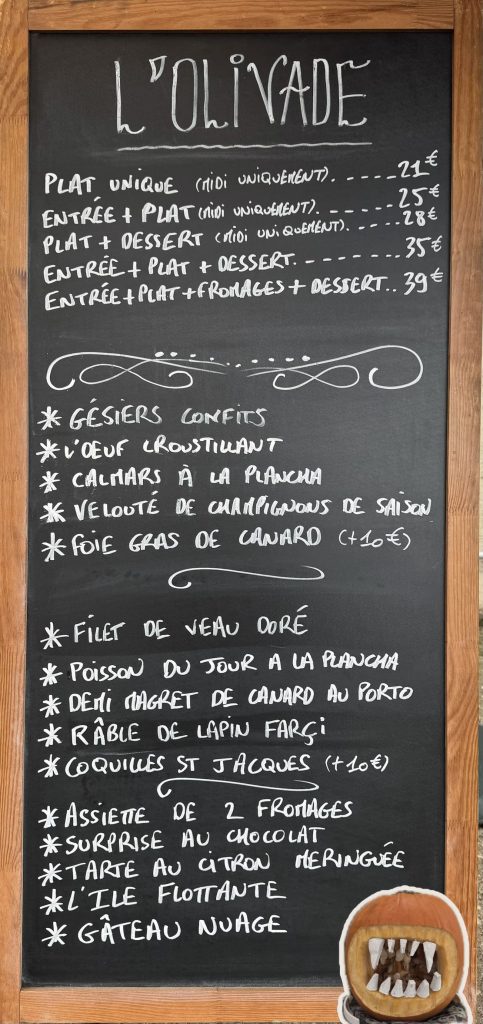 L'OLIVADE
PLAT UNIQUE (MIDI UNIQUEMENT). - - - - - 21€
ENTRÉE + PLAT (MIDI UNIQUEMENT). - - - - - 25€
PLAT + DESSERT (MIDI UNIQUEMENT). - - - - 28€
ENTRÉE + PLAT + DESSERT. - - - - - - - 35€
ENTRÉE + PLAT + FROMAGES + DESSERT.. 39€
* GÉSIERS CONFITS
* L'OEUF CROUSTILLANT
* CALMARS À LA PLANCHA
* VELOUTÉ DE CHAMPIGNONS DE SAISON
* FOIE GRAS DE CANARD (+10€)
* FILET DE VEAU DORÉ
* POISSON DU JOUR A LA PLANCHA
* DEMI MAGRET DE CANARD AU PORTO
* RÂBLE DE LAPIN FARÇI
* COQUILLES ST JACQUES (+10€)
* ASSIETTE DE 2 FROMAGES
* SURPRISE AU CHOCOLAT
* TARTE AU CITRON MERINGUÉE
* L'ILE FLOTTANTE
* GÂTEAU NUAGE